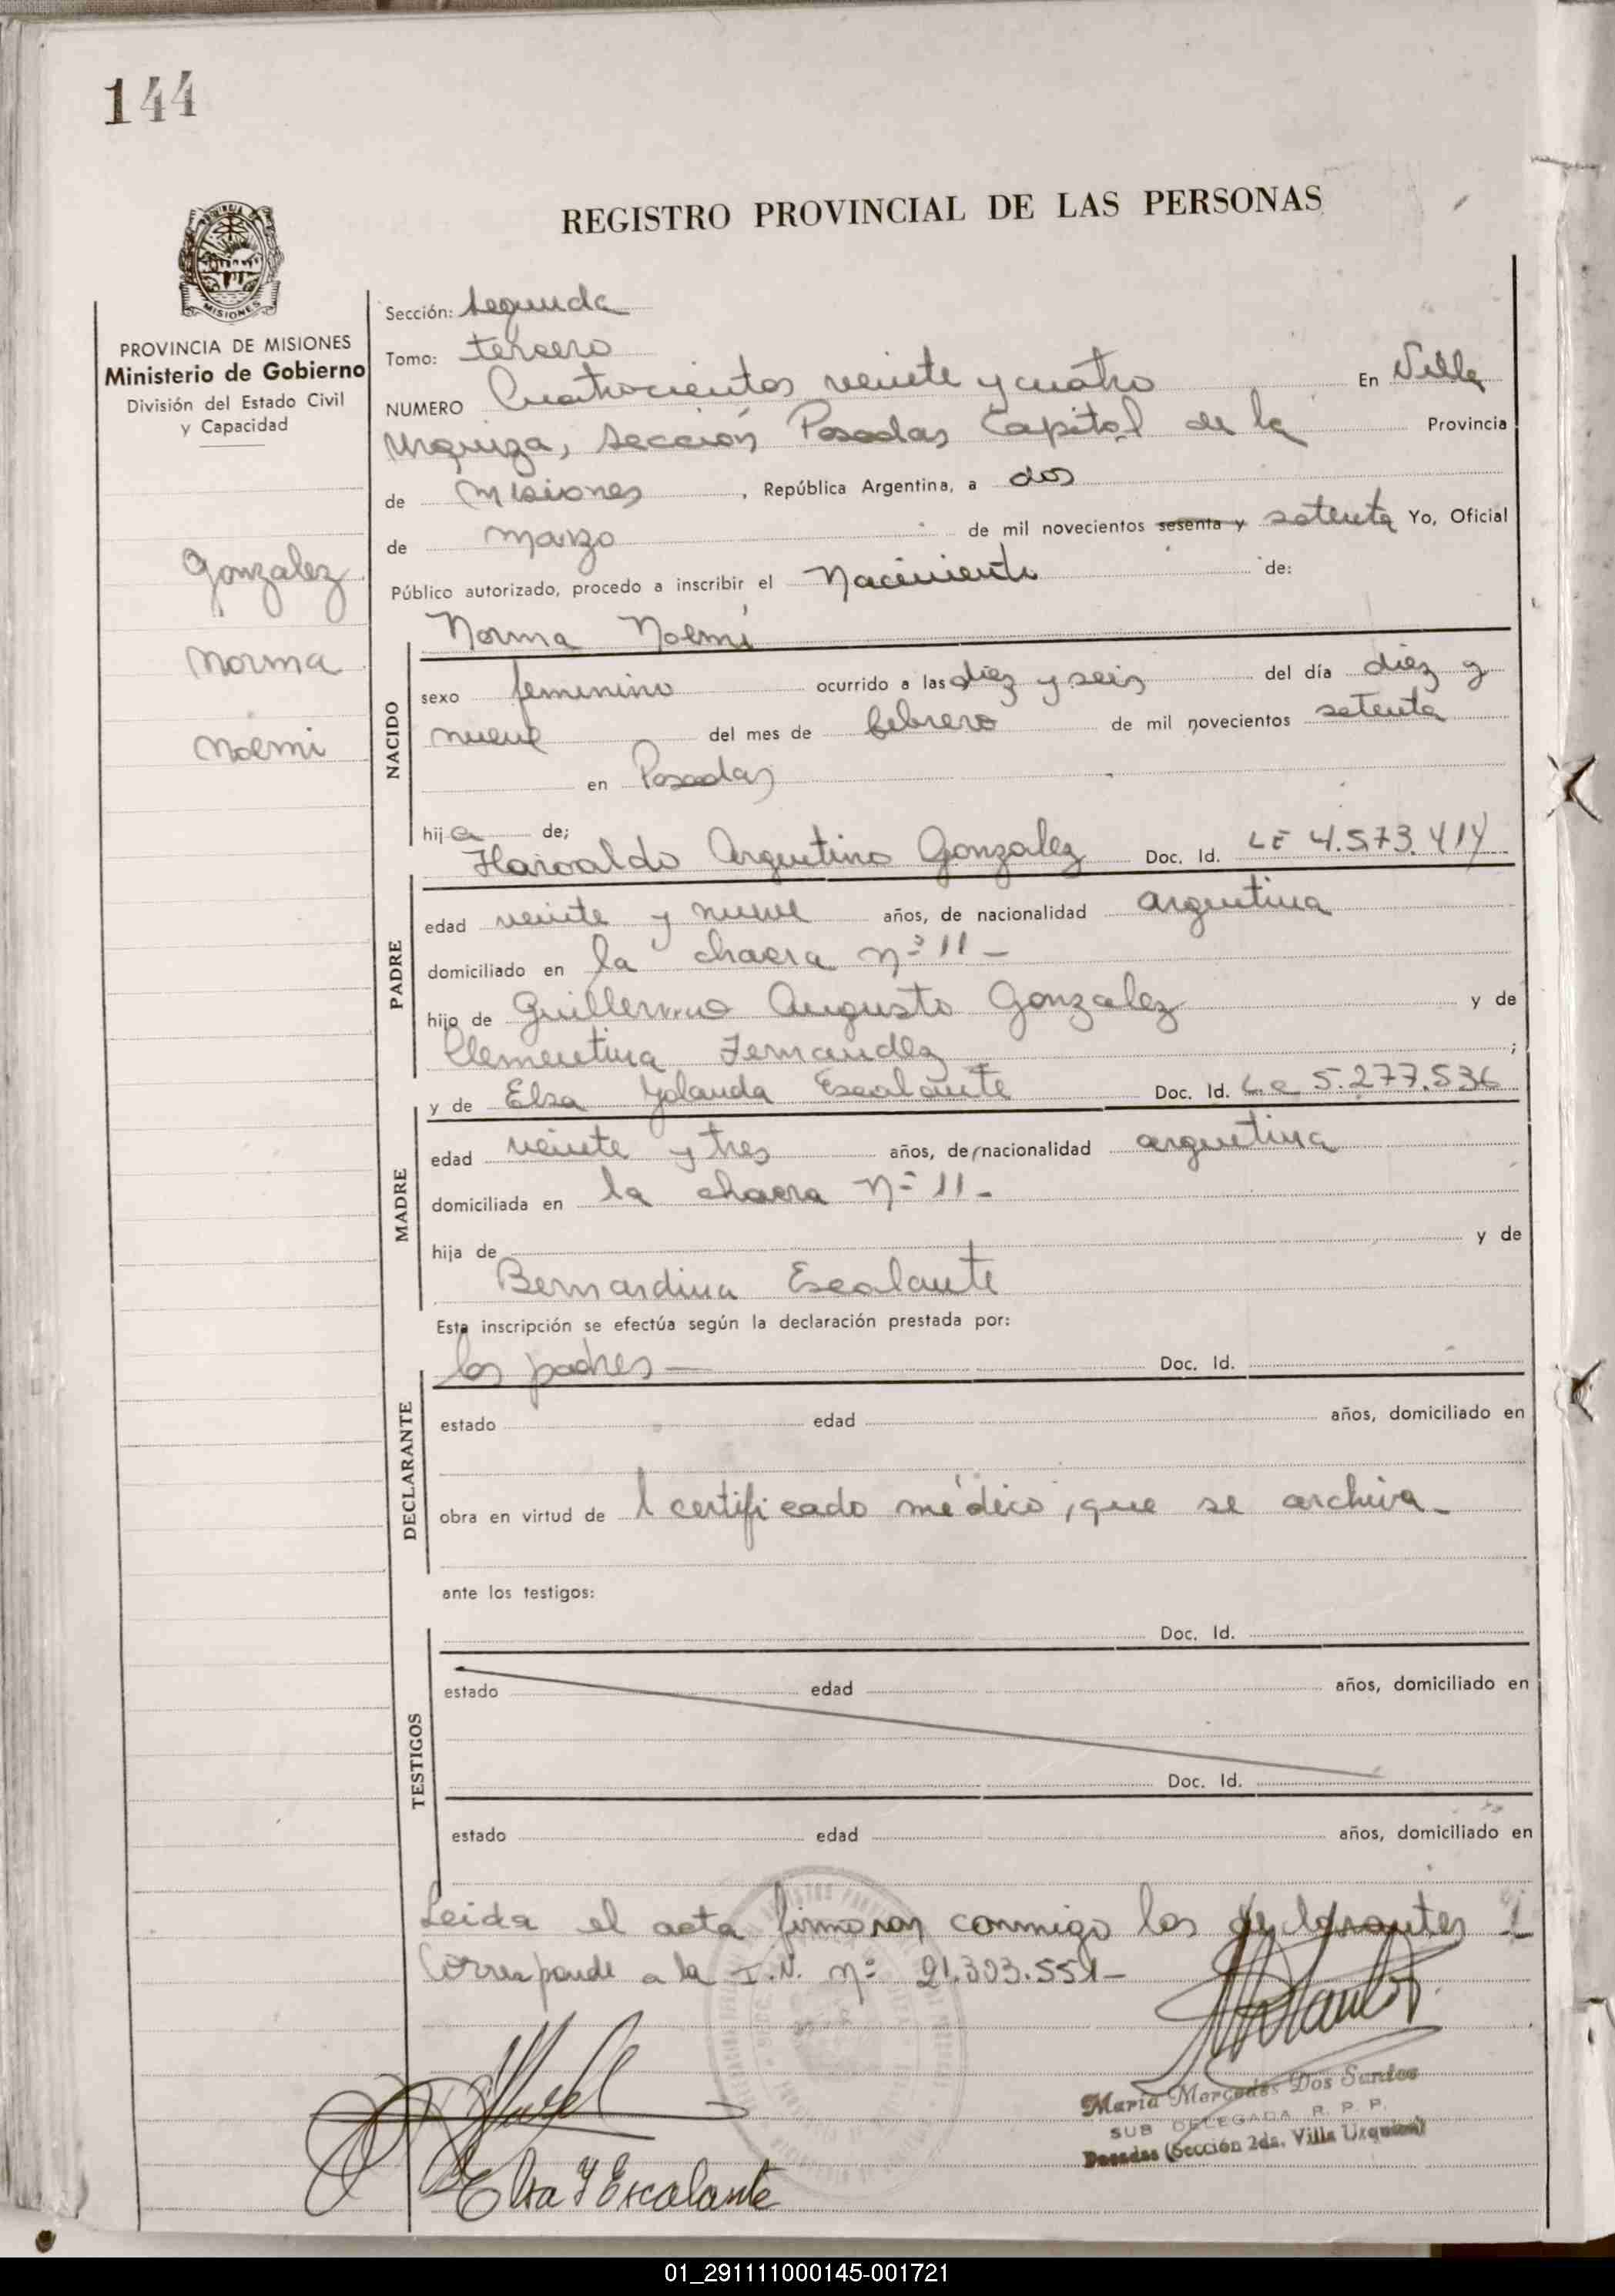 144
REGISTRO PROVINCIAL DE LAS PERSONAS
MISIONES
PROVINCIA DE MISIONES
Ministerio de Gobierno
División del Estado Civil
y Capacidad
Gonzalez
Norma
Noemi
Sección: Segunda
Tomo: tercero
NUMERO Cuatrocientos veinte y cuatro En Villa
Urquiza, Sección Posadas Capital de la Provincia
de Misiones , República Argentina, a dos
de marzo de mil novecientos sesenta y setenta Yo, Oficial
Público autorizado, procedo a inscribir el Nacimiento de:
Norma Noemí
NACIDO
sexo femenino ocurrido a las diez y seis del día diez y
nueve del mes de febrero de mil novecientos setenta
en Posadas
hija de;
Haroaldo Argentino Gonzalez Doc. Id. LE 4.573.414
PADRE
edad veinte y nueve años, de nacionalidad argentina
domiciliado en la chacra nº 11 -
hijo de Guillermo Augusto Gonzalez y de
Clementina Fernandez ;
y de Elsa Yolanda Escalante Doc. Id. Lc 5.277.536
MADRE
edad veinte y tres años, de nacionalidad argentina
domiciliada en la chacra nº 11 -
hija de y de
Bernardina Escalante
Esta inscripción se efectúa según la declaración prestada por:
los padres — Doc. Id.
DECLARANTE
estado edad años, domiciliado en
obra en virtud de l certificado médico, que se archiva -
ante los testigos:
Doc. Id.
TESTIGOS
estado edad años, domiciliado en
Doc. Id.
estado edad años, domiciliado en
Leida el acta firmaron conmigo los declarantes
Corresponde a la I.N. nº 21.303.551 -
Maria Mercedes Dos Santos
SUB DELEGADA R. P. P.
Posadas (Sección 2da. Villa Urquiza)
Elsa Y Escalante
01_291111000145-001721